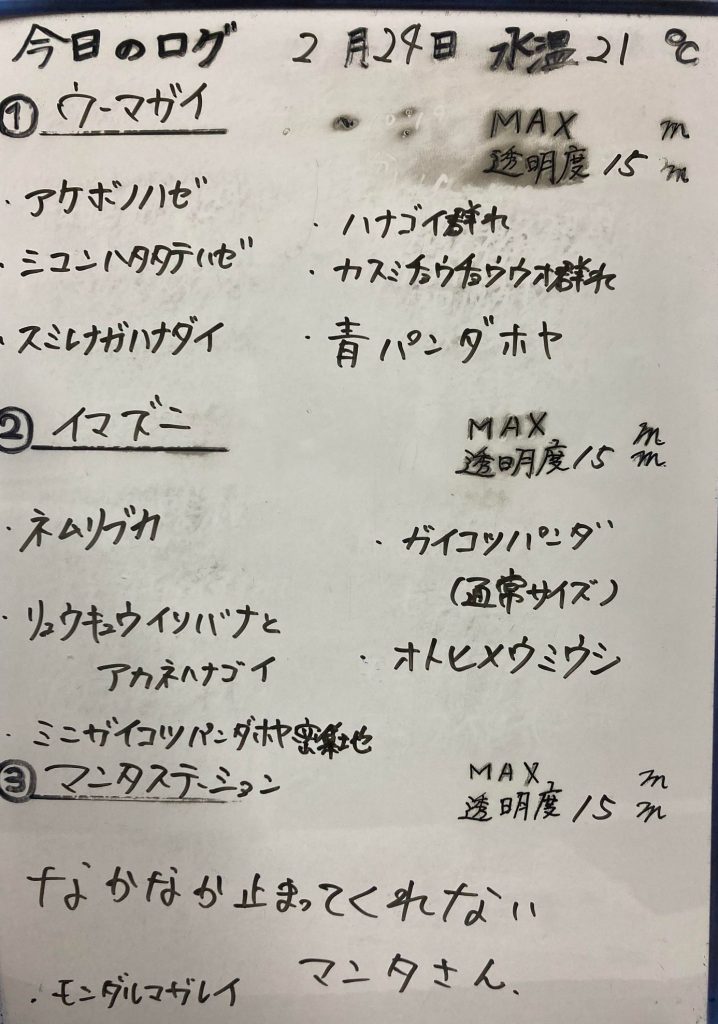 今日のログ 2月24日 水温21℃
① ウーマガイ
MAX m
透明度15m
・アケボノハゼ
・ハナゴイ群れ
・ミコンハタタテハゼ
・カスミチョウチョウウオ群れ
・スミレナガハナダイ
・青パンダホヤ
② イマズニ
MAX m
透明度15m
・ネムリブカ
・ガイコツパンダ
(通常サイズ)
・リュウキュウイソバナと
アカネハナゴイ
・オトヒメウミウシ
・ミニガイコツパンダホヤ密集地
③ マンタステーション
MAX m
透明度15m
なかなか止まってくれない
マンタさん.
・モンダルマガレイ